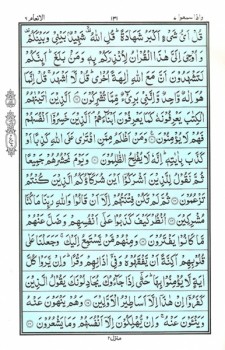 الانعام ٦
١٣١
قُلْ اَىُّ شَىْءٍ اَكْبَرُ شَهَادَةً ؕ قُلِ اللّٰهُ ۙ شَهِيْدٌۢ بَيْنِىْ وَبَيْنَكُمْ
وَاُوْحِىَ اِلَىَّ هٰذَا الْقُرْاٰنُ لِاُنْذِرَكُمْ بِهٖ وَمَنْۢ بَلَغَ ؕ اَئِنَّكُمْ
لَتَشْهَدُوْنَ اَنَّ مَعَ اللّٰهِ اٰلِهَةً اُخْرٰى ؕ قُلْ لَّاۤ اَشْهَدُ ۚ قُلْ اِنَّمَا
هُوَ اِلٰهٌ وَّاحِدٌ وَّاِنَّنِىْ بَرِىْٓءٌ مِّمَّا تُشْرِكُوْنَ ۘ اَلَّذِيْنَ اٰتَيْنٰهُمُ
الْكِتٰبَ يَعْرِفُوْنَهٗ كَمَا يَعْرِفُوْنَ اَبْنَآءَهُمْ ۘ اَلَّذِيْنَ خَسِرُوْۤا اَنْفُسَهُمْ
فَهُمْ لَا يُؤْمِنُوْنَ ۧ وَمَنْ اَظْلَمُ مِمَّنِ افْتَرٰى عَلَى اللّٰهِ كَذِبًا اَوْ
كَذَّبَ بِاٰيٰتِهٖ ؕ اِنَّهٗ لَا يُفْلِحُ الظّٰلِمُوْنَ وَيَوْمَ نَحْشُرُهُمْ جَمِيْعًا
ثُمَّ نَقُوْلُ لِلَّذِيْنَ اَشْرَكُوْۤا اَيْنَ شُرَكَآؤُكُمُ الَّذِيْنَ كُنْتُمْ
تَزْعُمُوْنَ ثُمَّ لَمْ تَكُنْ فِتْنَتُهُمْ اِلَّاۤ اَنْ قَالُوْا وَاللّٰهِ رَبِّنَا مَا كُنَّا
مُشْرِكِيْنَ اُنْظُرْ كَيْفَ كَذَبُوْا عَلٰٓى اَنْفُسِهِمْ وَضَلَّ عَنْهُمْ
مَّا كَانُوْا يَفْتَرُوْنَ وَمِنْهُمْ مَّنْ يَّسْتَمِعُ اِلَيْكَ ۚ وَجَعَلْنَا عَلٰى
قُلُوْبِهِمْ اَكِنَّةً اَنْ يَّفْقَهُوْهُ وَفِىْۤ اٰذَانِهِمْ وَقْرًا ؕ وَاِنْ يَّرَوْا كُلَّ
اٰيَةٍ لَّا يُؤْمِنُوْا بِهَا ؕ حَتّٰۤى اِذَا جَآءُوْكَ يُجَادِلُوْنَكَ يَقُوْلُ الَّذِيْنَ
كَفَرُوْۤا اِنْ هٰذَاۤ اِلَّاۤ اَسَاطِيْرُ الْاَوَّلِيْنَ وَهُمْ يَنْهَوْنَ عَنْهُ
وَيَنْئَوْنَ عَنْهُ ۚ وَاِنْ يُّهْلِكُوْنَ اِلَّاۤ اَنْفُسَهُمْ وَمَا يَشْعُرُوْنَ
منزل ٢